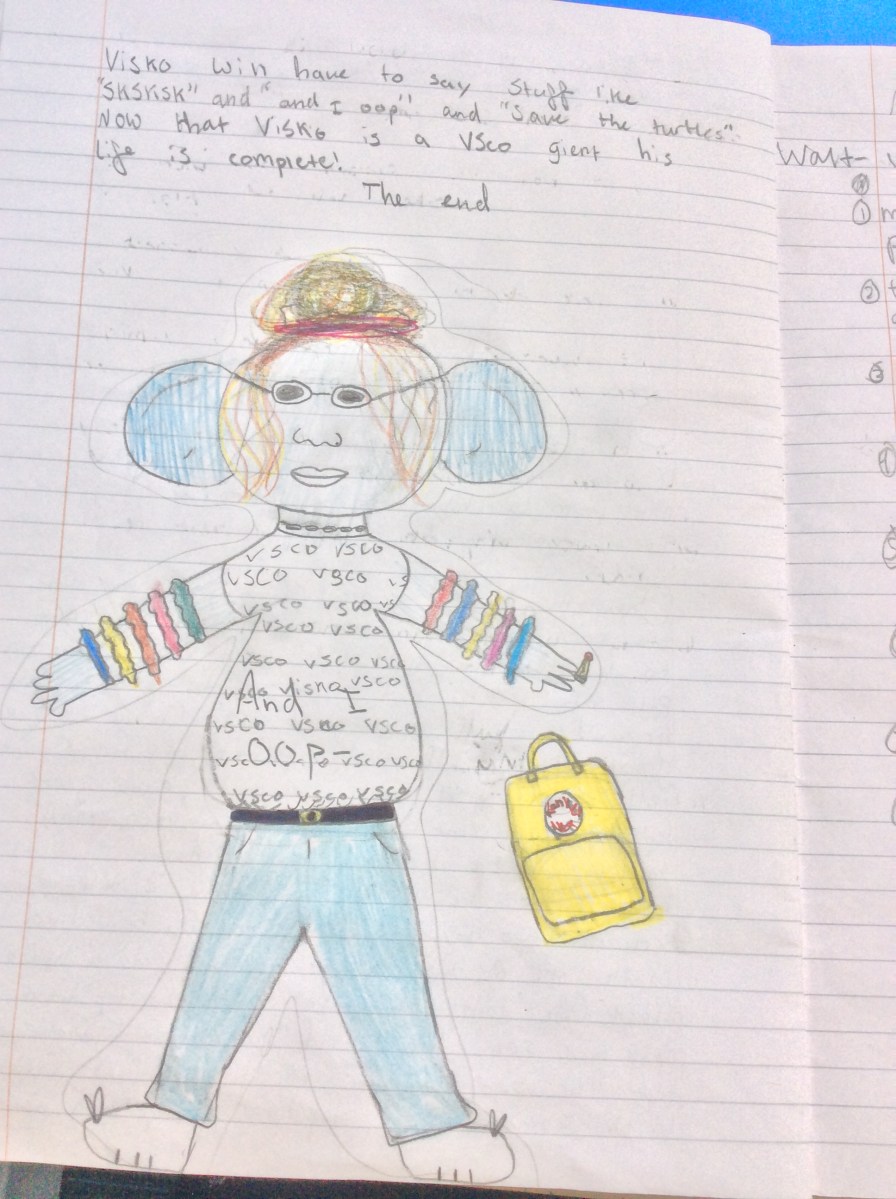 Visko will have to say stuff like
"SKSKSK" and "and I oop" and "Save the turtles".
Now that Visko is a VSco gient his
life is complete!
The end
VSCO VSCO
VSCO VSCO VS
VSCO VSCO VS
VSCO VSCO
VSCO VSCO VSCO
And I VSCO
VSCO VSCO VSCO
VSC O.O.P- VSCO VSCO
VSCO VSCO VSCO
Walt-
①
②
③